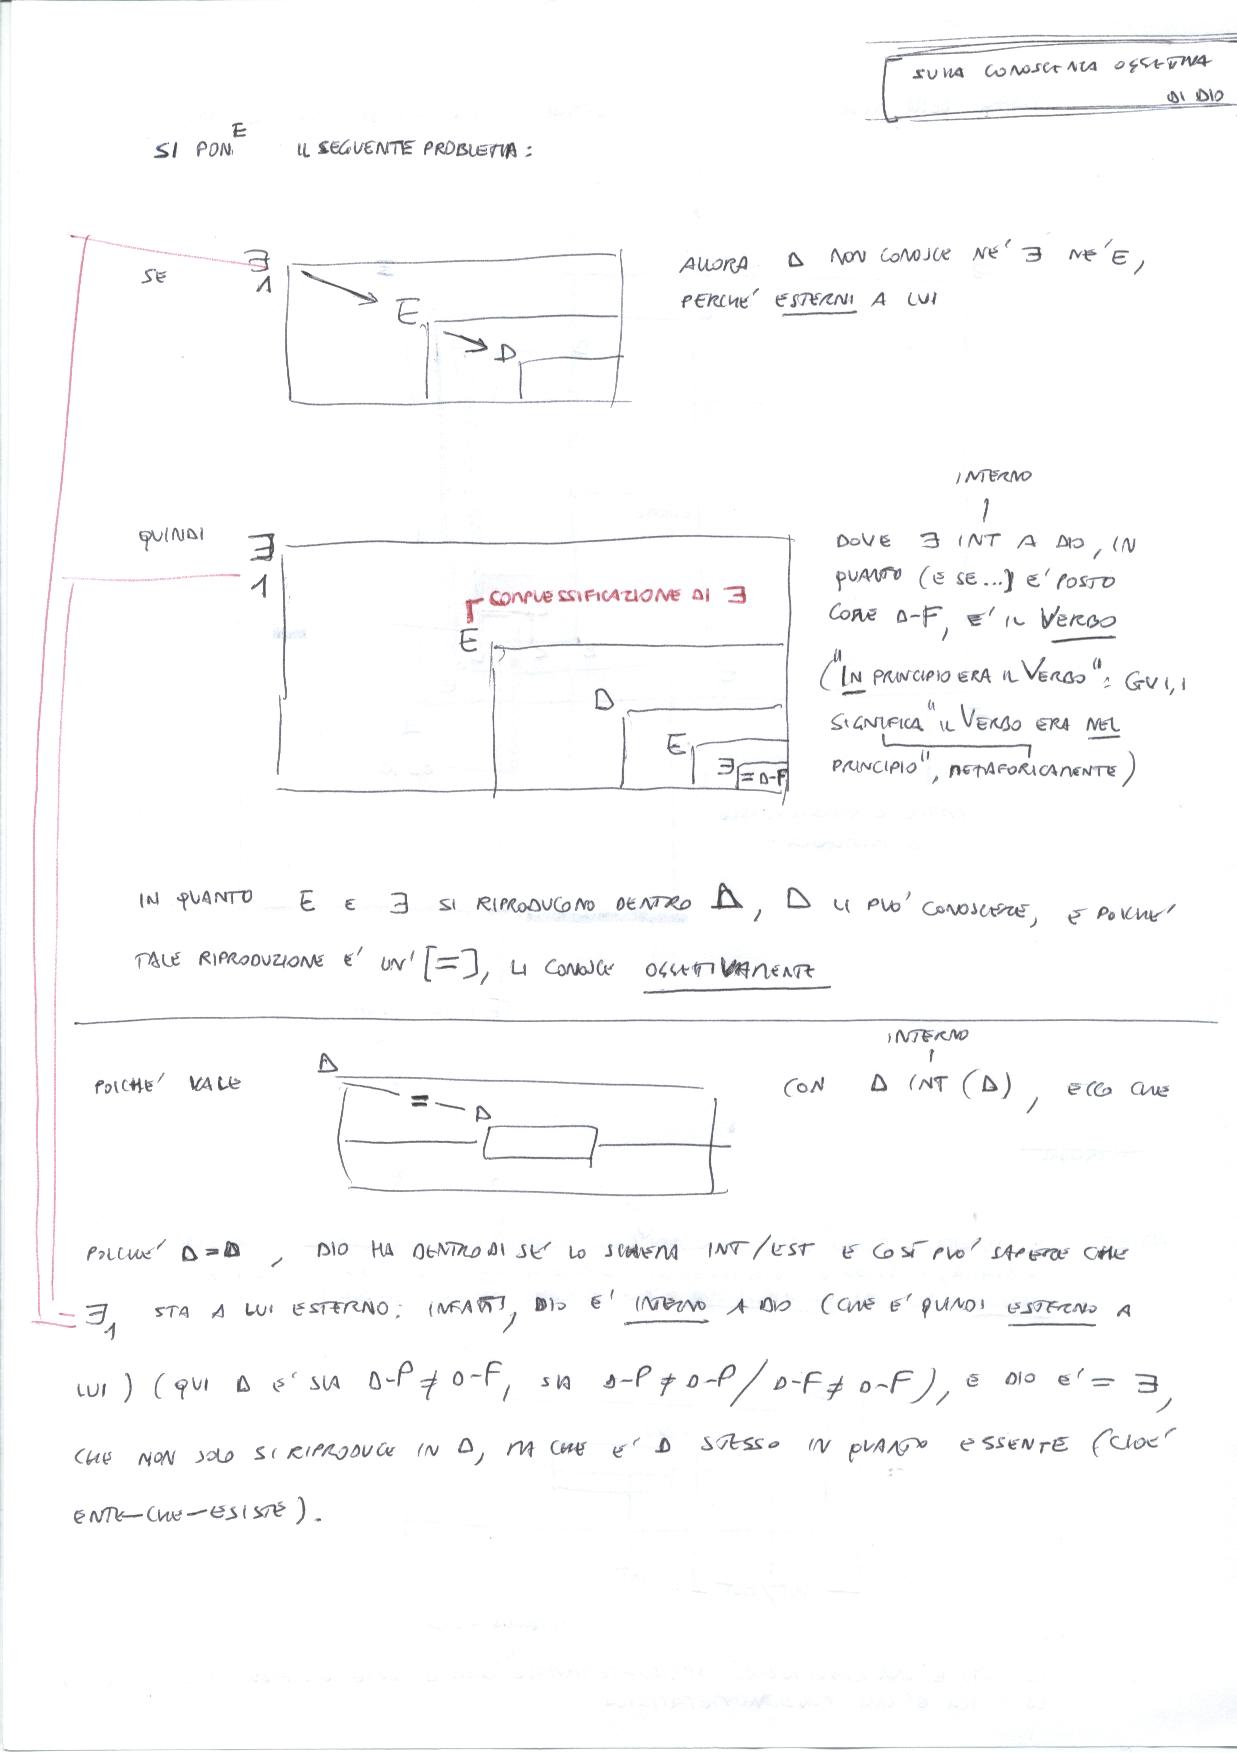 SULLA CONOSCENZA OGGETTIVA
DI DIO
SI PONE IL SEGUENTE PROBLEMA:
SE
∃
1
E
D
ALLORA D NON CONOSCE NE' ∃ NE' E,
PERCHE' ESTERNI A LUI
QUINDI
∃
1
COMPLESSIFICAZIONE DI ∃
E
D
E
∃ = D-F
INTERNO
DOVE ∃ INT A DIO, IN
QUANTO (E SE...) E' POSTO
COME D-F, E' IL VERBO
("IN PRINCIPIO ERA IL VERBO": GV 1,1
SIGNIFICA "IL VERBO ERA NEL
PRINCIPIO", METAFORICAMENTE)
IN QUANTO E E ∃ SI RIPRODUCONO DENTRO D, D LI PUO' CONOSCERE, E POICHE'
TALE RIPRODUZIONE E' UN' [=], LI CONOSCE OGGETTIVAMENTE
POICHE' VALE
D
= D
INTERNO
CON D INT (D), ECCO CHE
POICHE' D=D, DIO HA DENTRO DI SE' LO SCHEMA INT/EST E COSÌ PUO' SAPERE CHE
∃1 STA A LUI ESTERNO: INFATTI, DIO E' INTERNO A DIO (CHE E' QUINDI ESTERNO A
LUI) (QUI D E' SIA D-P ≠ D-F, SIA D-P ≠ D-P / D-F ≠ D-F), E DIO E' = ∃,
CHE NON SOLO SI RIPRODUCE IN D, MA CHE E' D STESSO IN QUANTO ESSENTE (CIOE'
ENTE-CHE-ESISTE).